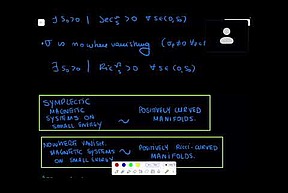 ∃ s₀>0 | Sec^σ_s > 0 ∀ s∈(0,s₀)
• σ is nowhere vanishing (σ_x≠0 ∀x∈
∃ s₀>0 | Ric^σ_s > 0 ∀ s∈(0,s₀)
SYMPLECTIC
MAGNETIC
SYSTEMS ON
SMALL ENERGY
~
POSITIVELY CURVED
MANIFOLDS.
NOWHERE VANISH.
MAGNETIC SYSTEMS
ON SMALL ENERGY
~
POSITIVELY RICCI-CURVED
MANIFOLDS.